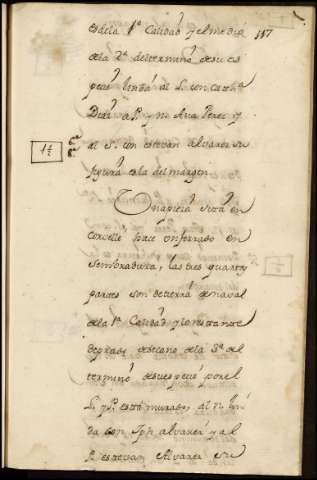 es de la 1ª Calidad y el medio
de la 2ª del termino de su es
pecie linda al L. con Catha
Diaz a P. y N. Ana Perez y
al S. con estevan alvarez su
figura es la del margen
1½
117
Una pieza sita en
corvelle hace un ferrado en
sembradura, las tres quartas
partes son de tierra de naval
de la 1ª Calidad y lo restante
de prado de secano de la 3ª del
termino de su especie por el
L. y P. esta murada, al N. lin
da con Jph alvarez y al
S. estevan Alvarez su